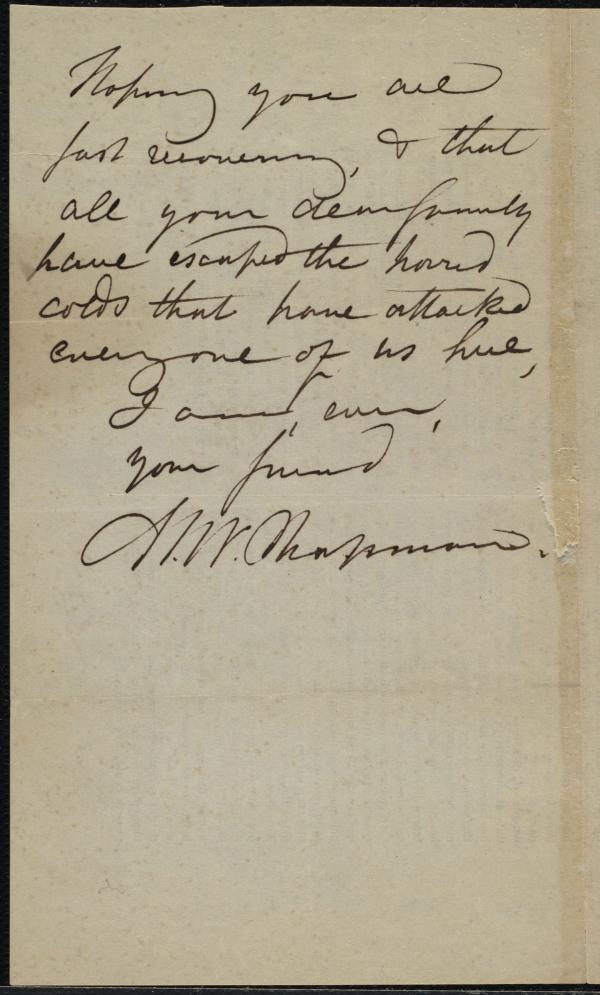 Hoping you are
fast recovering, & that
all your dear family
have escaped the horrid
colds that have attacked
every one of us here,
I am, ever,
your friend
M. W. Chapman.